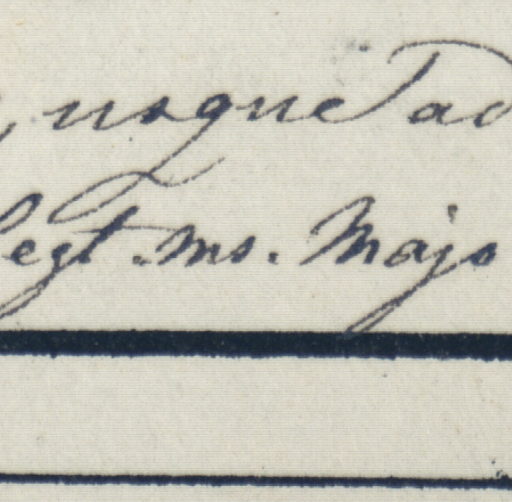 , usque ad
legt. ms. Majo